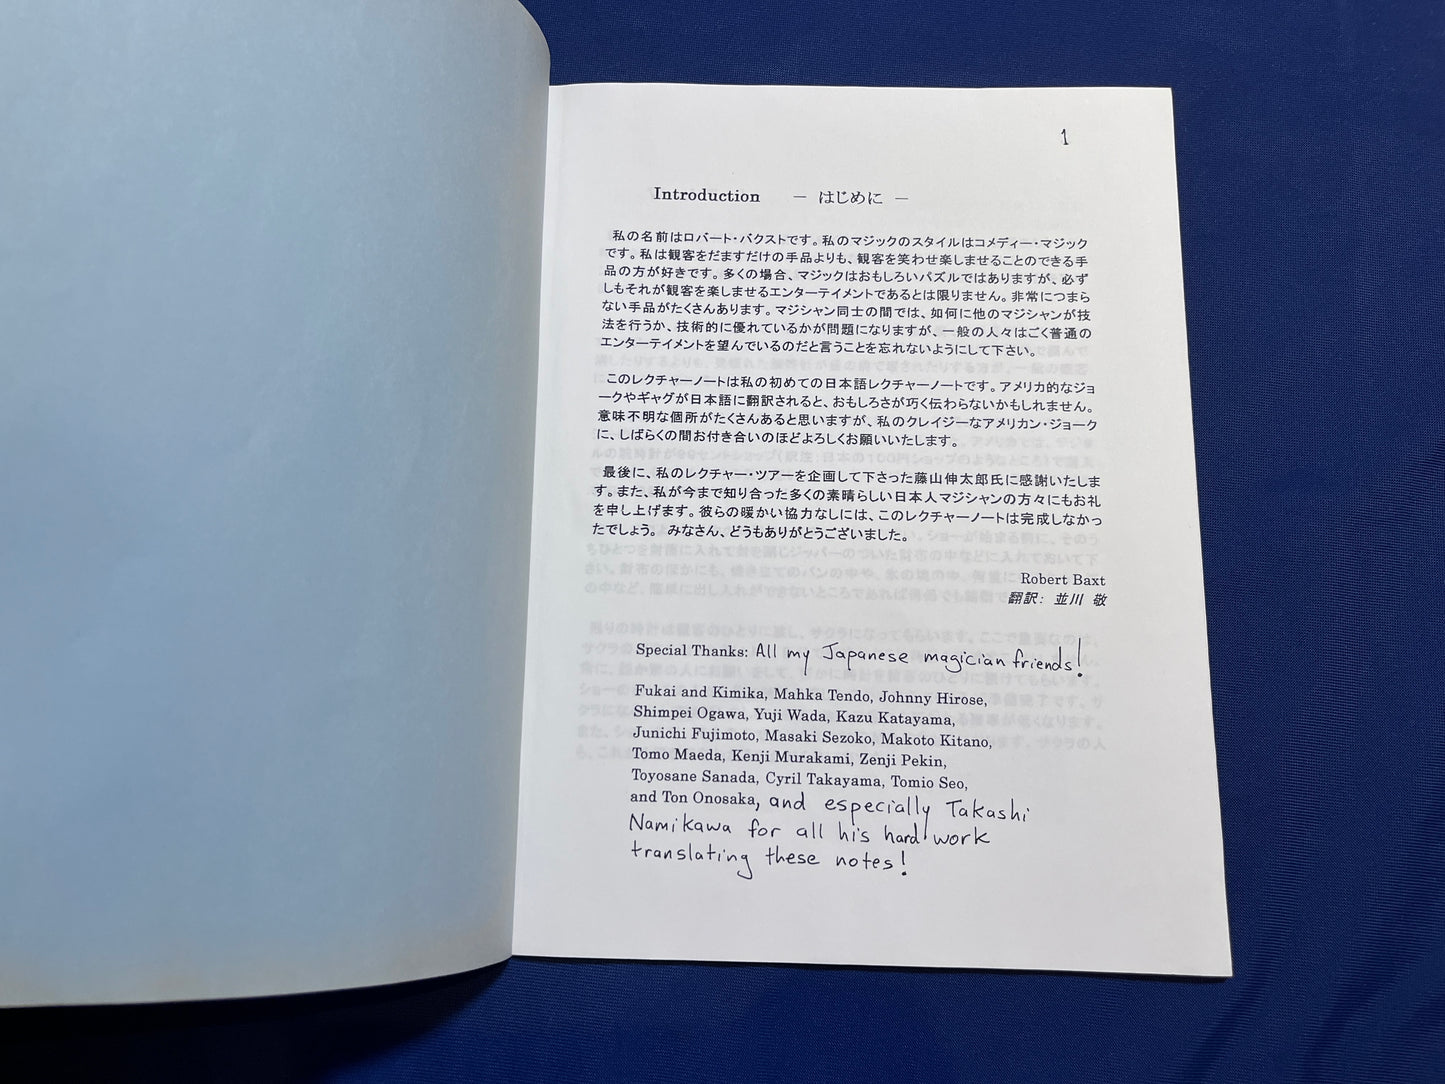 1
Introduction － はじめに －
私の名前はロバート・バクストです。私のマジックのスタイルはコメディー・マジック
です。私は観客をだますだけの手品よりも、観客を笑わせ楽しませることのできる手
品の方が好きです。多くの場合、マジックはおもしろいパズルではありますが、必ず
しもそれが観客を楽しませるエンターテイメントであるとは限りません。非常につまら
ない手品がたくさんあります。マジシャン同士の間では、如何に他のマジシャンが技
法を行うか、技術的に優れているかが問題になりますが、一般の人々はごく普通の
エンターテイメントを望んでいるのだと言うことを忘れないようにして下さい。
このレクチャーノートは私の初めての日本語レクチャーノートです。アメリカ的なジョ
ークやギャグが日本語に翻訳されると、おもしろさが巧く伝わらないかもしれません。
意味不明な個所がたくさんあると思いますが、私のクレイジーなアメリカン・ジョーク
に、しばらくの間お付き合いのほどよろしくお願いいたします。
最後に、私のレクチャー・ツアーを企画して下さった藤山伸太郎氏に感謝いたしま
す。また、私が今まで知り合った多くの素晴らしい日本人マジシャンの方々にもお礼
を申し上げます。彼らの暖かい協力なしには、このレクチャーノートは完成しなかっ
たでしょう。 みなさん、どうもありがとうございました。
Robert Baxt
翻訳: 並川 敬
Special Thanks: All my Japanese magician friends!
Fukai and Kimika, Mahka Tendo, Johnny Hirose,
Shimpei Ogawa, Yuji Wada, Kazu Katayama,
Junichi Fujimoto, Masaki Sezoko, Makoto Kitano,
Tomo Maeda, Kenji Murakami, Zenji Pekin,
Toyosane Sanada, Cyril Takayama, Tomio Seo,
and Ton Onosaka, and especially Takashi
Namikawa for all his hard work
translating these notes!